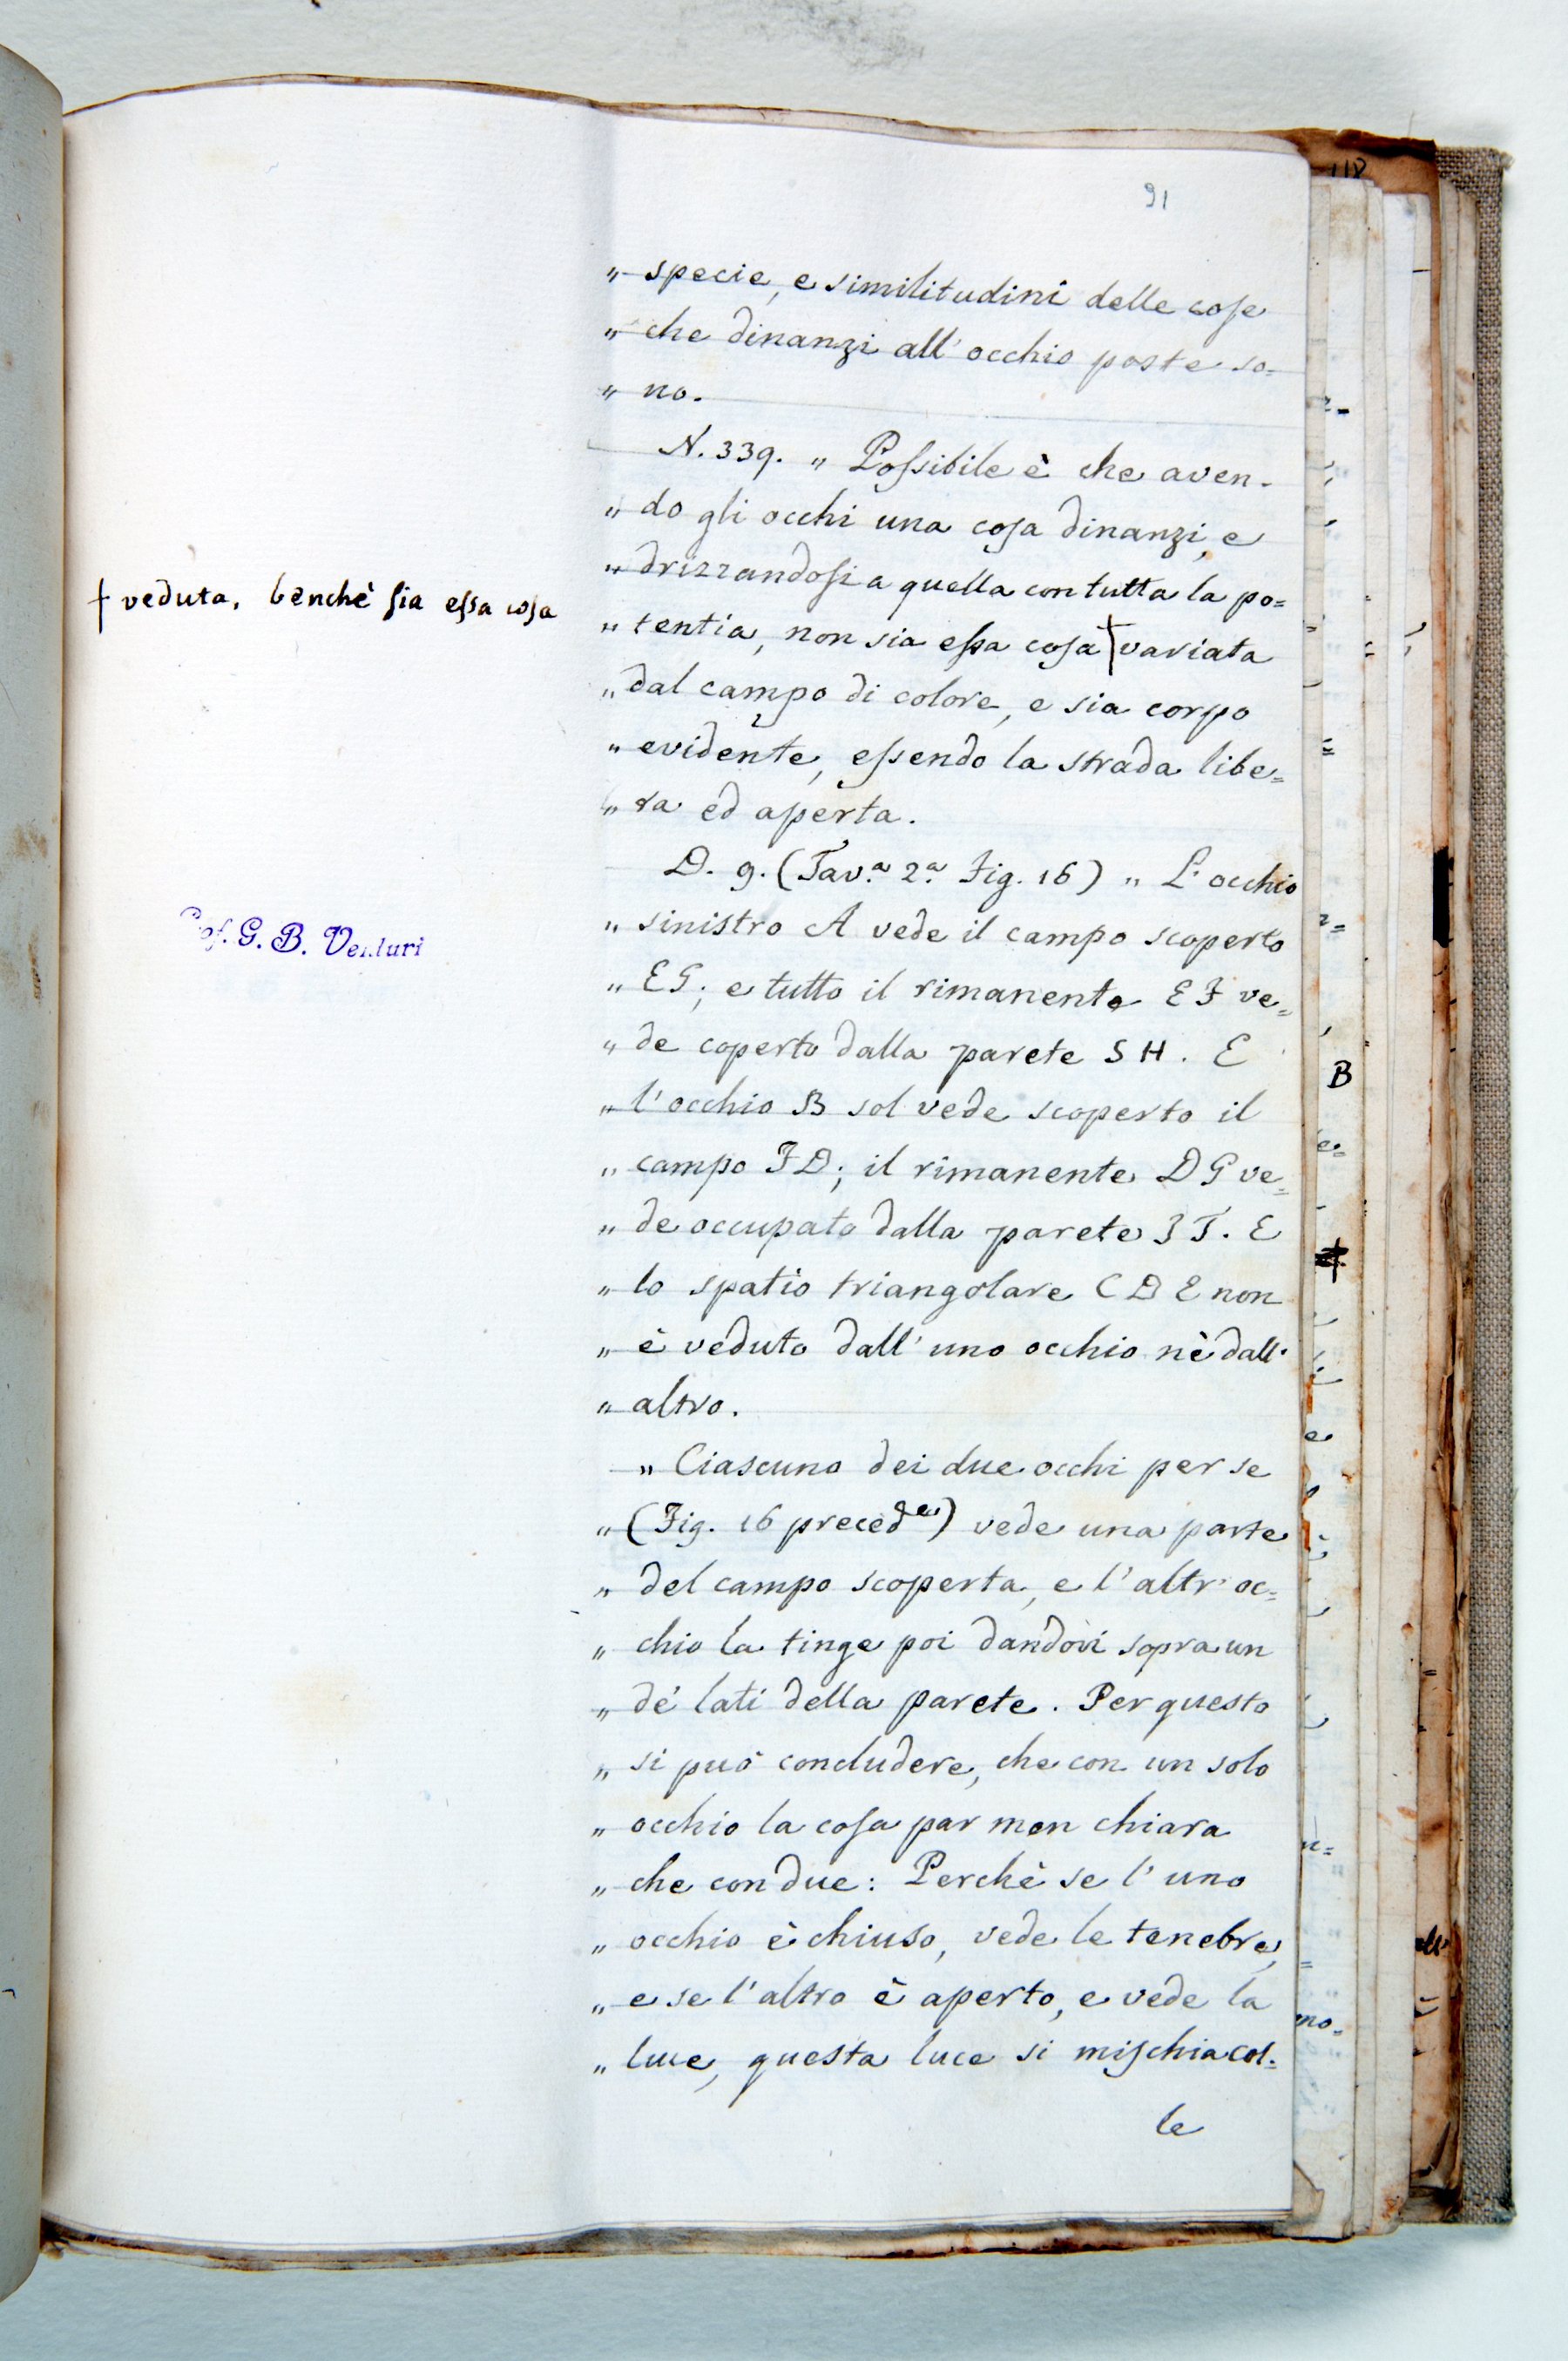 91
„ specie, e similitudini delle cose
„ che dinanzi all'occhio poste so=
„ no.
N. 339. „ Possibile è che aven-
„ do gli occhi una cosa dinanzi, e
„ drizzandosi a quella con tutta la po=
„ tentia, non sia essa cosa † variata
† veduta, benchè sia essa cosa
„ dal campo di colore, e sia corpo
„ evidente, essendo la strada libe=
„ ra ed aperta.
D. 9. (Tav.a 2.a Fig. 16) „ L'occhio
„ sinistro A vede il campo scoperto
„ EG; e tutto il rimanente EF ve=
„ de coperto dalla parete SH. E
„ l'occhio B sol vede scoperto il
„ campo FD; il rimanente DG ve=
„ de occupato dalla parete 3T. E
„ lo spatio triangolare CDE non
„ è veduto dall'uno occhio nè dall'
„ altro.
„ Ciascuno dei due occhi per se
„ (Fig. 16 precedte) vede una parte
„ del campo scoperta, e l'altr'oc=
„ chio la tinge poi dandovi sopra un
„ de' lati della parete. Per questo
„ si può concludere, che con un solo
„ occhio la cosa par men chiara
„ che con due: Perchè se l'uno
„ occhio è chiuso, vede le tenebre,
„ e se l'altro è aperto, e vede la
„ luce, questa luce si mischia col=
le
Prof. G. B. Venturi
118
B